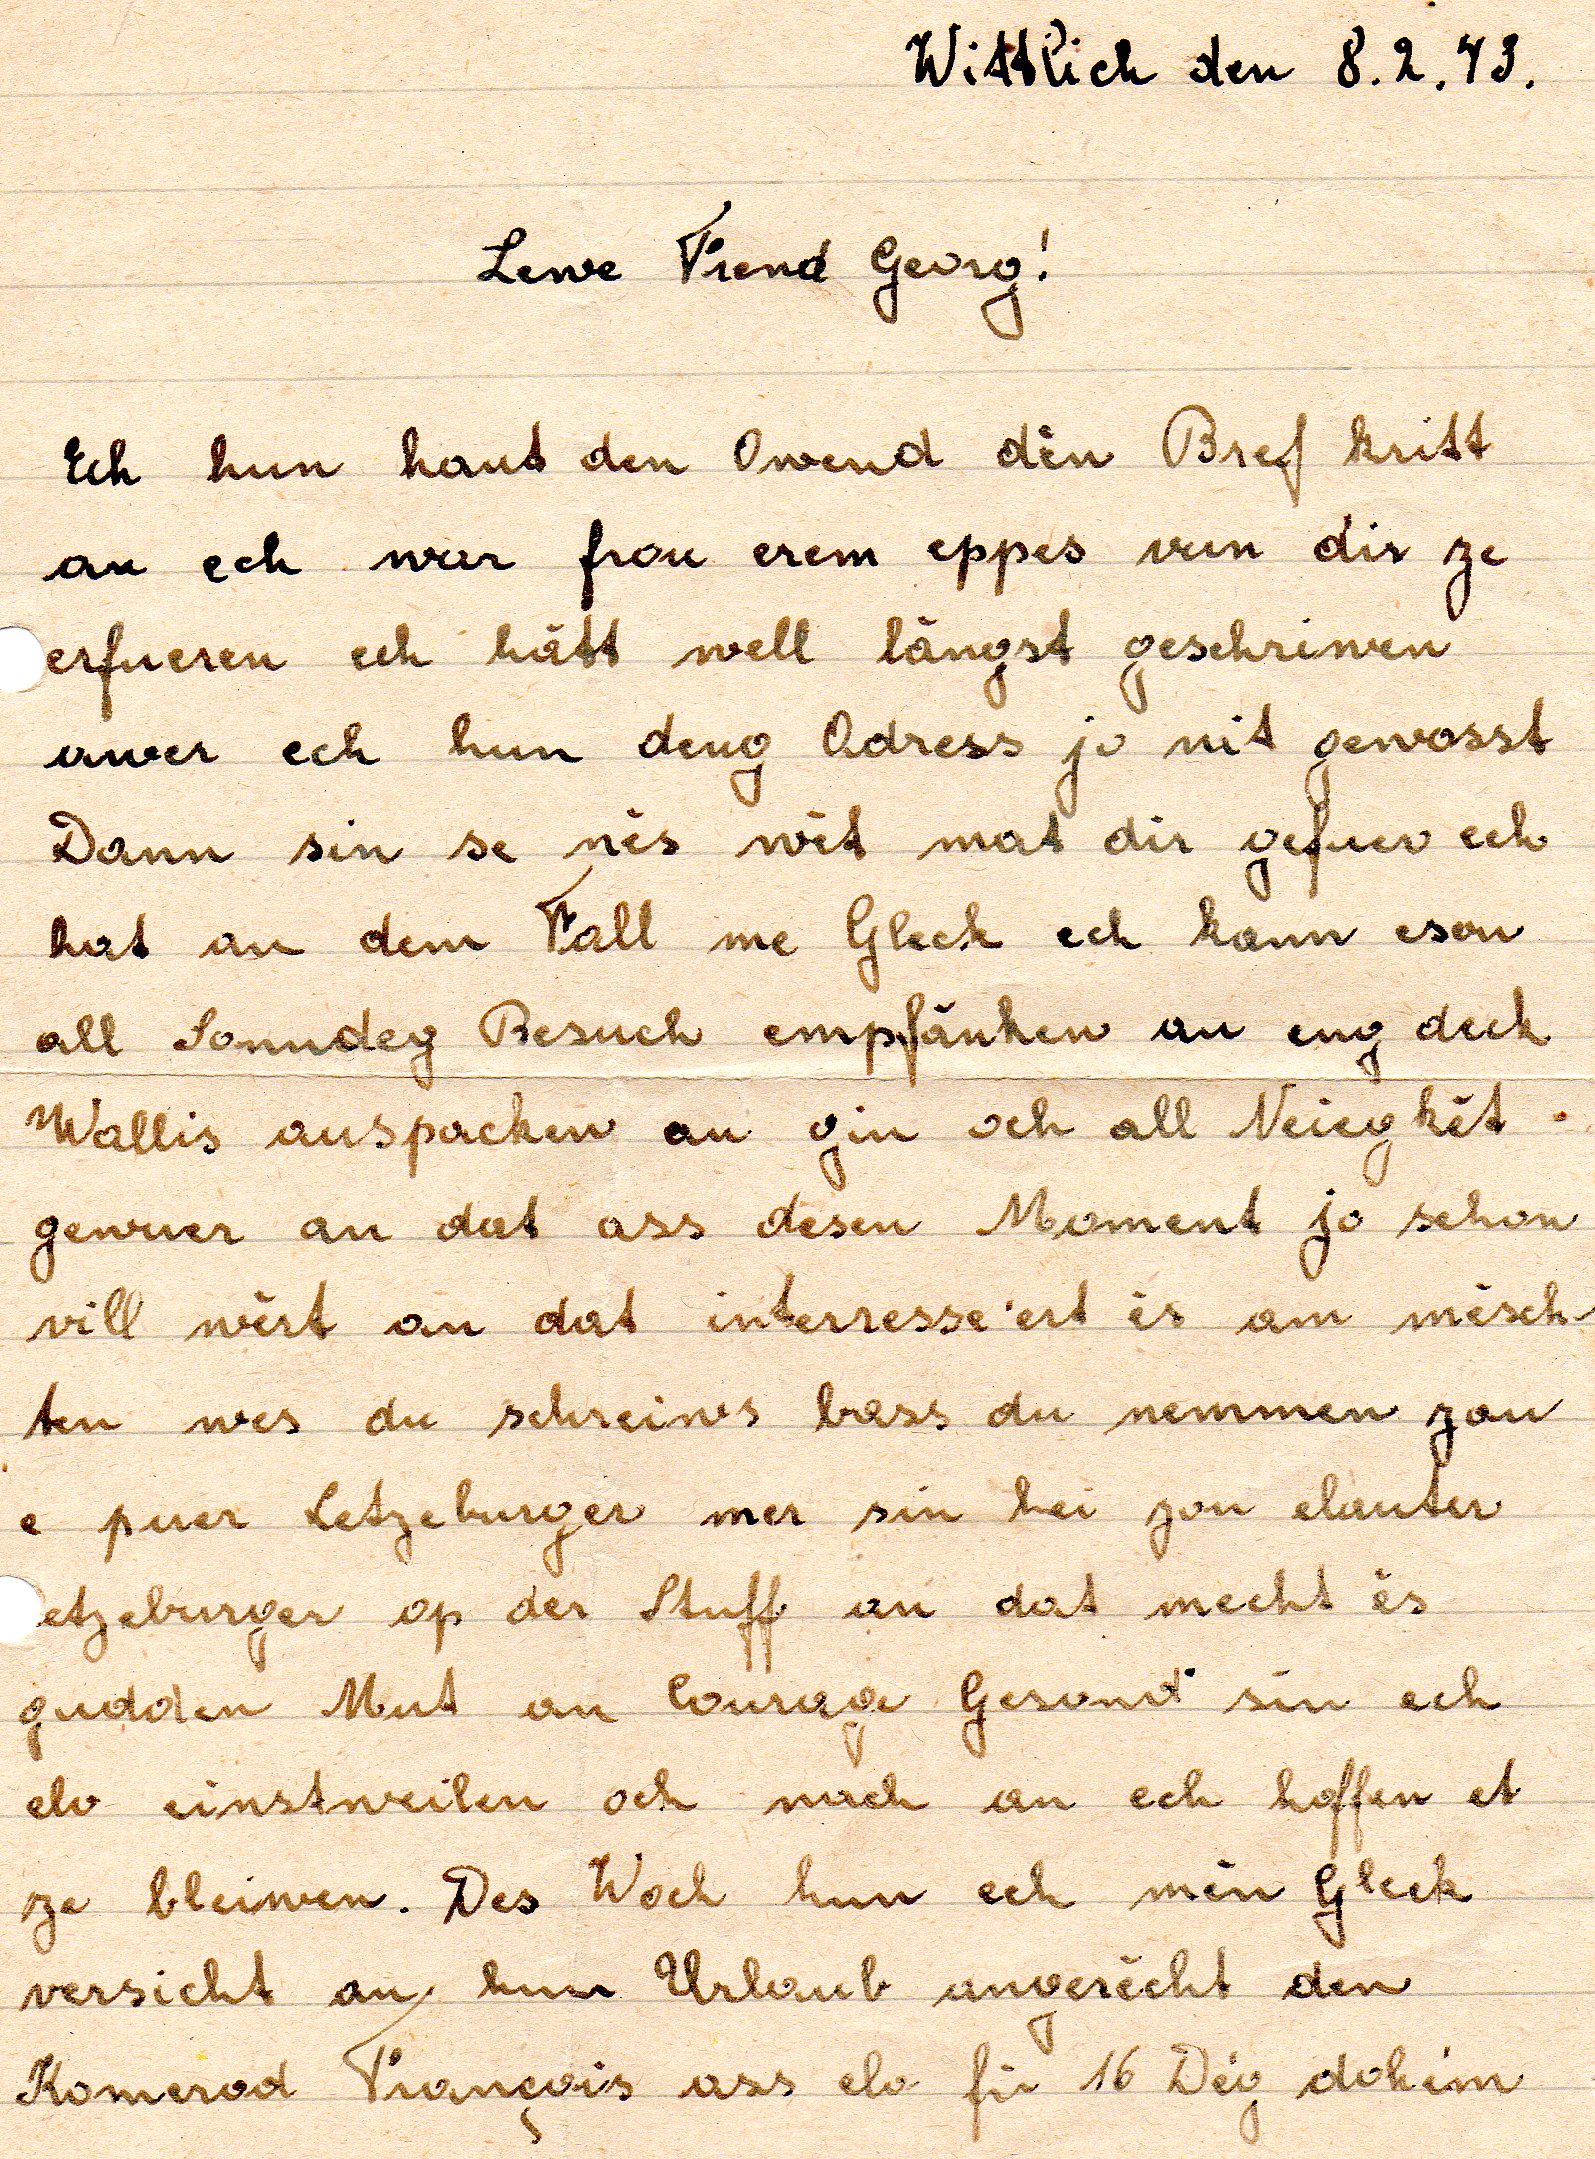 Wittlich den 8.2.43.
Lewe Frend Georg!
Ech hun haut den Owend dén Bref kritt
an ech war frou erem eppes vun dir ze
erfueren ech hätt well längst geschriwen
awer ech hun deng Adress jo nit gewosst
Dann sin se nés wét mat dir gefuer ech
hat an dem Fall me Gleck ech kann eson
all Sonndeg Besuch empfänken an eng deck
Wallis auspacken an gin och all Neiegkét
gewuer an dat ass desen Moment jo schon
vill wért an dat interresse'ert és am mésch-
ten wes du schreiws bass du nemmen zou
e puer Letzeburger mer sin hei zou elauter
etzeburger op der Stuff an dat mecht és
gudden Mut an Courage Gesond sin ech
elo einstweilen och nach an ech hoffen et
ze bleiwen. Des Woch hun ech mén Gleck
versicht an hun Urlaub angerécht den
Komerod François ass elo fir 16 Dég dohém